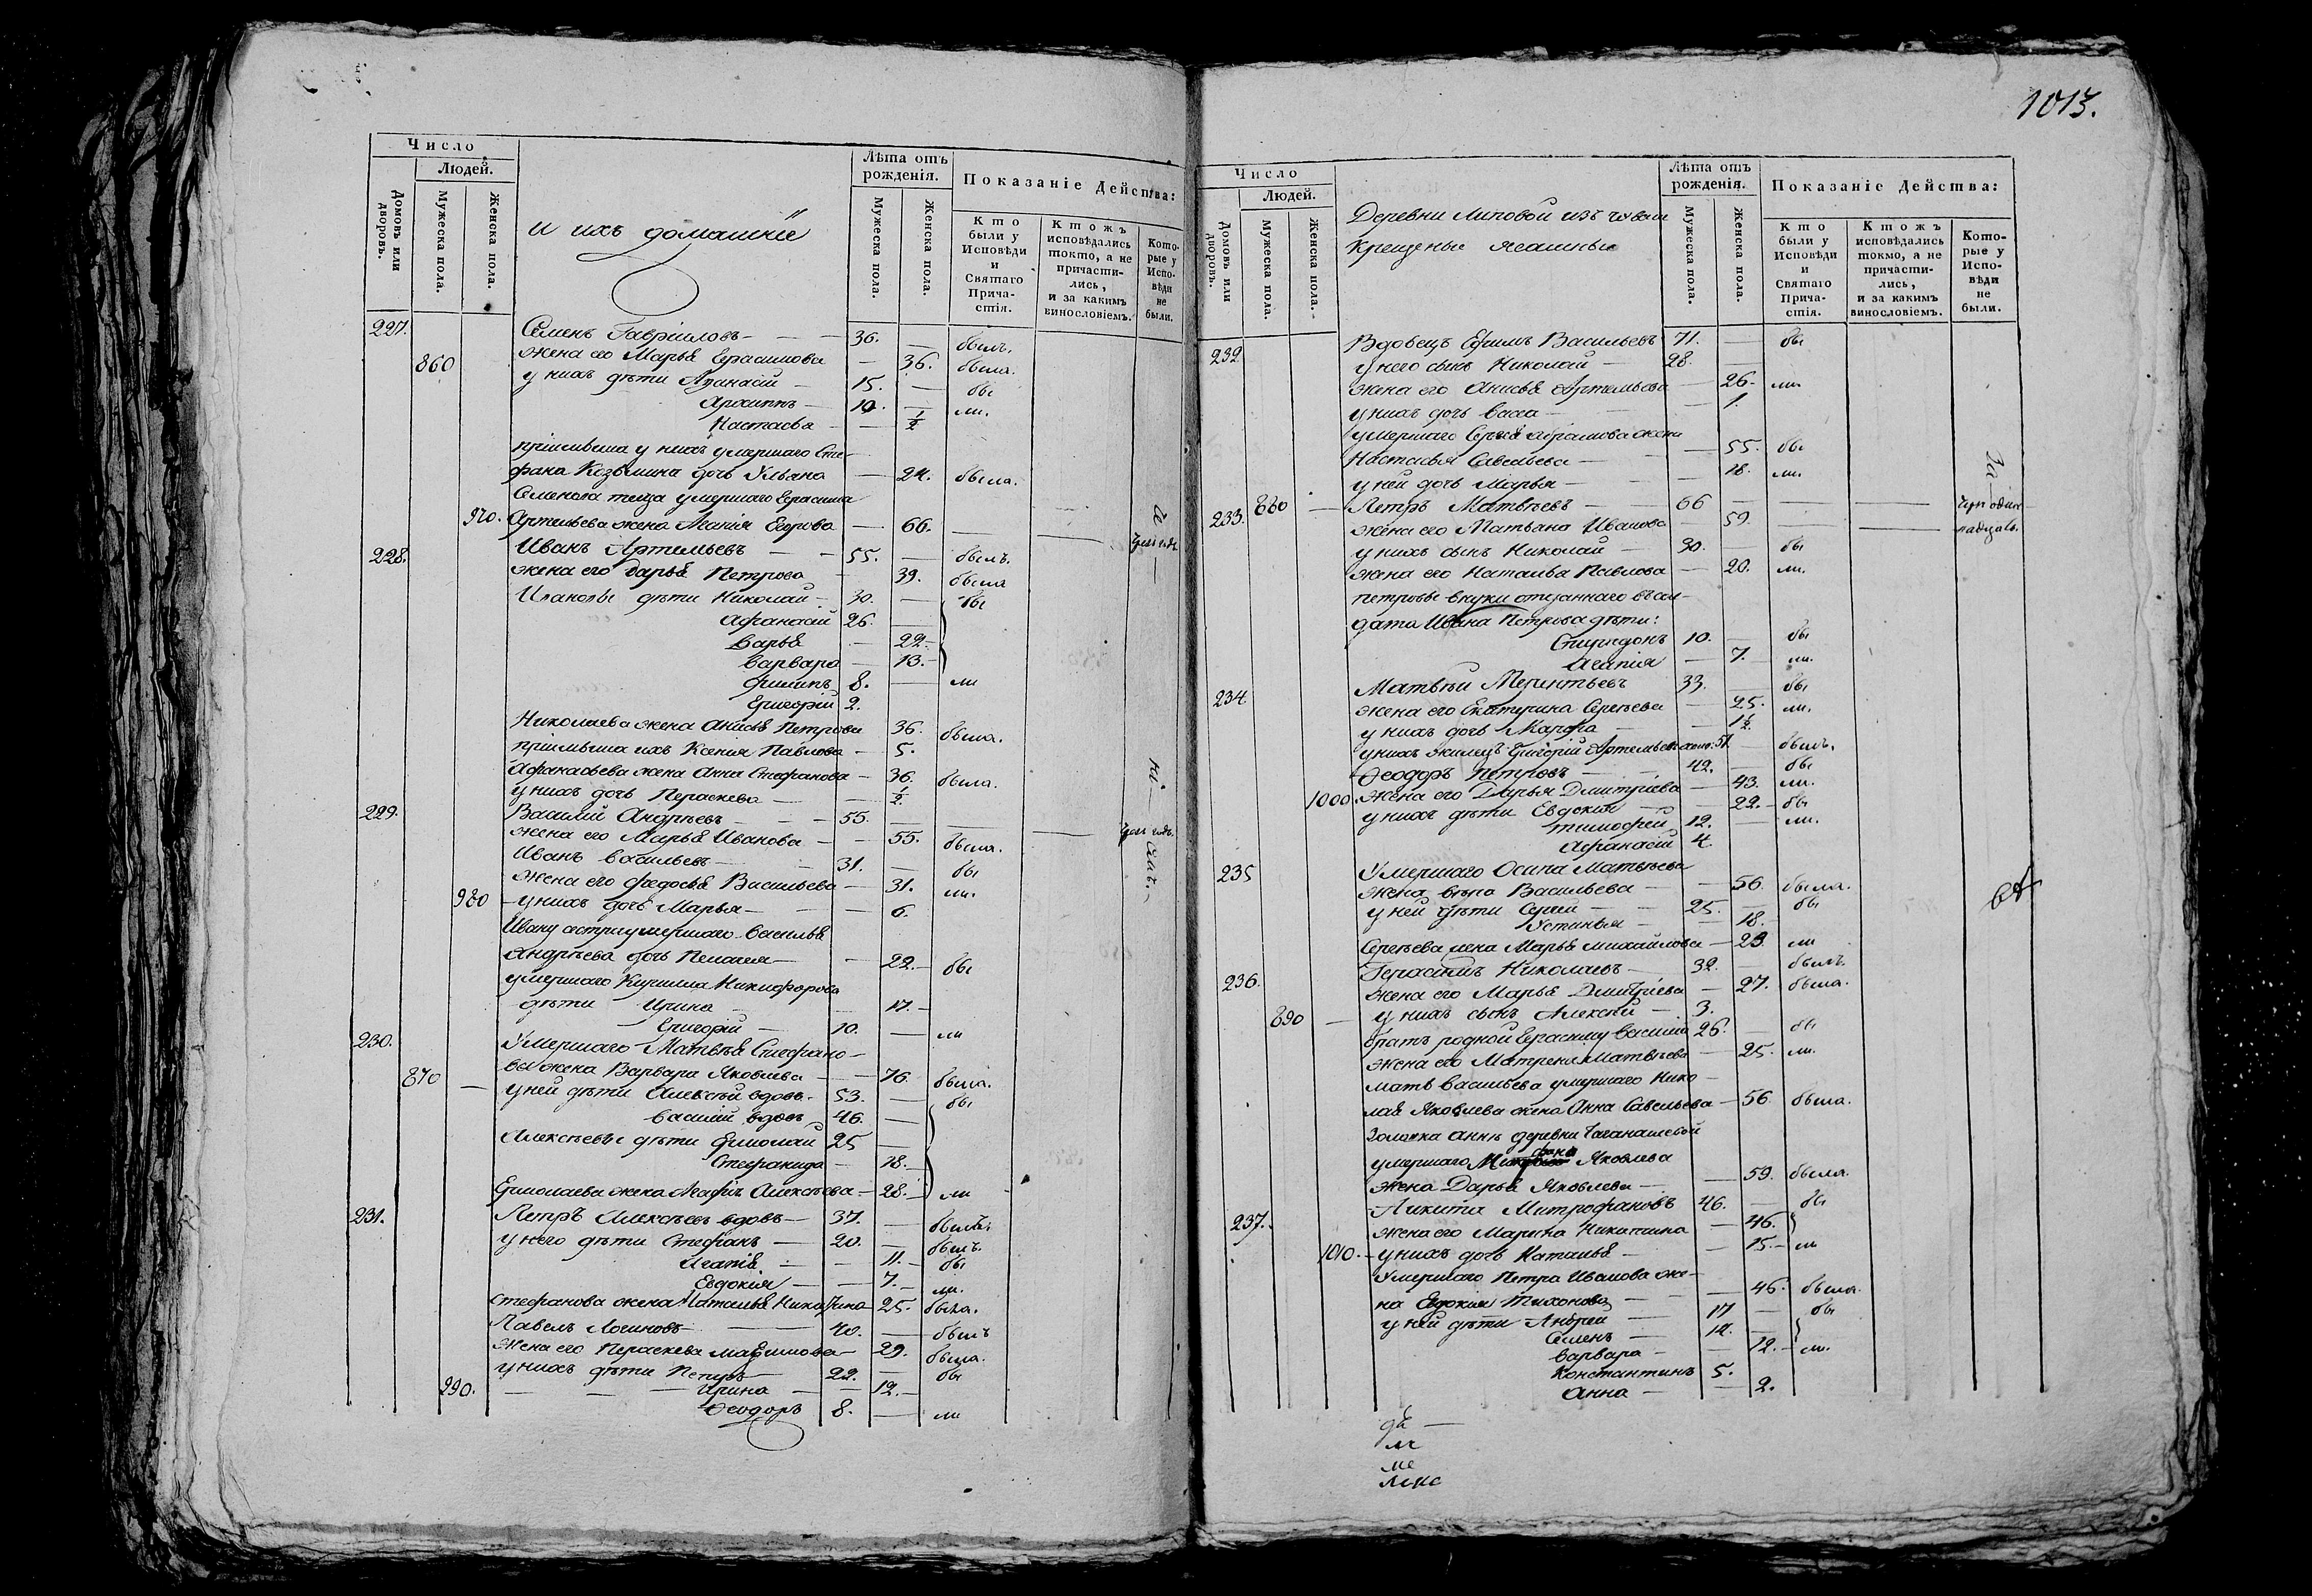 Число
Людей.
Домовъ или дворовъ.
Мужеска пола.
Женска пола.
и ихъ домашніе
Лѣта отъ рожденія.
Мужеска пола.
Женска пола.
Показаніе Действа:
Кто были у Исповѣди и Святаго Прича-стія.
Ктожъ исповѣдались токмо, а не причасти-лись, и за какимъ винословіемъ.
Кото-рые у Испо-вѣди не были.
227. Семенъ Гавриловъ — 36. — былъ.
860 жена его Марья Герасимова — 36. была.
у нихъ дѣти Афанасій — 15. — бы
Архиппъ — 10. — ли.
Настасья — 1/2
пріемыша у нихъ умершаго Сте-
фана Козьмина дочь Ульяна — 24. была.
Семенова теща умершаго Герасима
970. Артемьева жена Агапія Егорова — 66.
228. Иванъ Артемьевъ — 55. — былъ.
жена его Дарья Петрова — 39. была
Ивановы дѣти Николай — 30. — бы
Афанасій 26.
Дарья — 22.
Варвара — 13.
Филипъ 8. — ли
Григорій 2.
Николаева жена Анисья Петрова 36. была.
пріемыша ихъ Ксенія Павлова — 5.
Афанасьева жена Анна Стефанова — 36. была.
у нихъ дочь Параскева — 1/2
229. Василій Андреевъ — 55.
жена его Марья Иванова — 55. была.
Иванъ Васильевъ — 31. — бы
жена его Федосья Васильева — 31. ли.
980 у нихъ дочь Марья — 6.
Ивану сестра умершаго Василья
Андреева дочь Пелагея — 22. бы
умершаго Кирилла Никифорова
дѣти Ирина — 17.
Григорій — 10. — ли
230. Умершаго Матвѣя Стефано-
ва жена Варвара Яковлева — 76. была.
870 у ней дѣти Алексѣй вдовъ. 53. — бы
Василій вдовъ 46.
Алексѣевы дѣти Ермолай 25
Стефанида — 18.
Ермолаева жена Агафія Алексѣева — 28. ли
231. Петръ Алексѣевъ вдовъ — 37. — былъ.
у него дѣти Стефанъ — 20. — былъ.
Агапія — 11. бы
Евдокія — 7. ли.
Стефанова жена Наталья — 25. была.
Павелъ Логиновъ — 40. — былъ
жена его Параскева Максимова — 29. была.
у нихъ дѣти Петръ 22. — бы
990. Ирина — 12.
Ѳеодоръ 8. — ли
1013.
Число
Людей.
Домовъ или дворовъ.
Мужеска пола.
Женска пола.
Деревни Липовой изъ чувашъ
крещеные ясашные
Лѣта отъ рожденія.
Мужеска пола.
Женска пола.
Показаніе Действа:
Кто были у Исповѣди и Святаго Прича-стія.
Ктожъ исповѣдались токмо, а не причасти-лись, и за какимъ винословіемъ.
Кото-рые у Испо-вѣди не были.
232 Вдовецъ Ефимъ Васильевъ 71. — бы
у него сынъ Николай — 28.
жена его Анисья Артемьева — 26. ли.
у нихъ дочь Васса — 1.
умершаго Сергѣя Абрамова жена
Настасья Савельева — 55. бы
у ней дочь Марья — 18. ли.
233. 880 — Петръ Матвѣевъ — 66
жена его Татьяна Иванова — 59.
у нихъ сынъ Николай — 30. — бы
жена его Наталья Павлова — 20. ли.
Петровы внуки отданнаго въ сол-
дата Ивана Петрова дѣти:
Спиридонъ 10. — бы
Агапія — 7. ли.
234. Матвѣй Терентьевъ 33. — бы
жена его Екатерина Сергѣева — 25. ли.
у нихъ дочь Марфа — 1 1/2.
у нихъ жилецъ Григорій Артемьевъ 51 — былъ.
Ѳеодоръ Петровъ — 42. — бы
1000. жена его Дарья Дмитріева — 43. ли.
у нихъ дѣти Евдокія — 22. бы
Тимофей 12. — ли.
Афанасій 4.
235 Умершаго Осипа Матвѣева
жена Вѣра Васильева — 56. была.
у ней дѣти Сергѣй — 25. — бы
Устинья — 18.
Сергѣева жена Марья Михайлова — 23. ли
236. Герасимъ Николаевъ — 32. — былъ.
жена его Марья Дмитріева — 27. была.
890 — у нихъ сынъ Алексѣй — 3.
братъ родной Герасиму Василій 26. — бы
жена его Матрена Матвѣева — 25. ли.
мать Васильева умершаго Нико-
лая Яковлева жена Анна Савельева — 56. была.
Золовка Аннѣ деревни
умершаго Яковлева
жена Дарья Яковлева — 59. была.
237. Никита Митрофановъ 46. — бы
жена его Марина Никитина — 46.
1010. у нихъ дочь Наталья — 15. ли
Умершаго Петра Иванова же-
на Евдокія Тихонова — 46. была.
у ней дѣти Андрей 17 — бы
Семенъ — 14.
Варвара — 12. ли.
Константинъ 5.
Анна — 2.